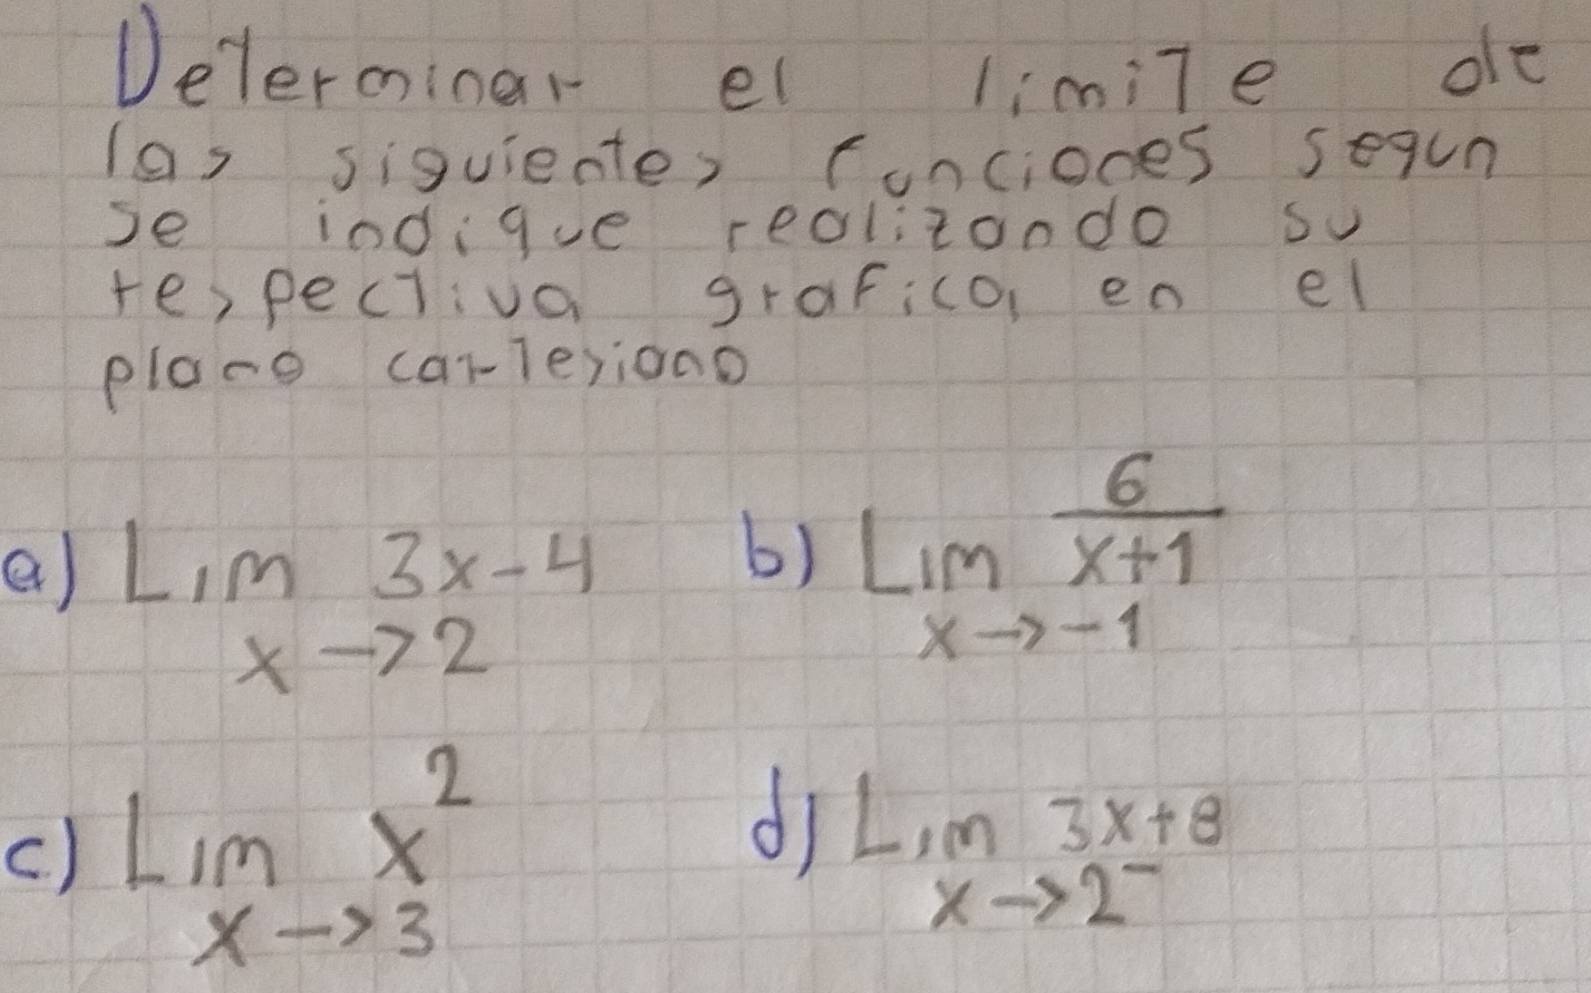 Determinar el limite de
las siguientes funciones segun
se indique realizando su
respectiva grafica, en el
plano cartesiano
a) Lim 3x-4 b) Lim 6/(x+1)
x→2 x→-1
c) Lim x² d) Lim 3x+8
x→3 x→2⁻